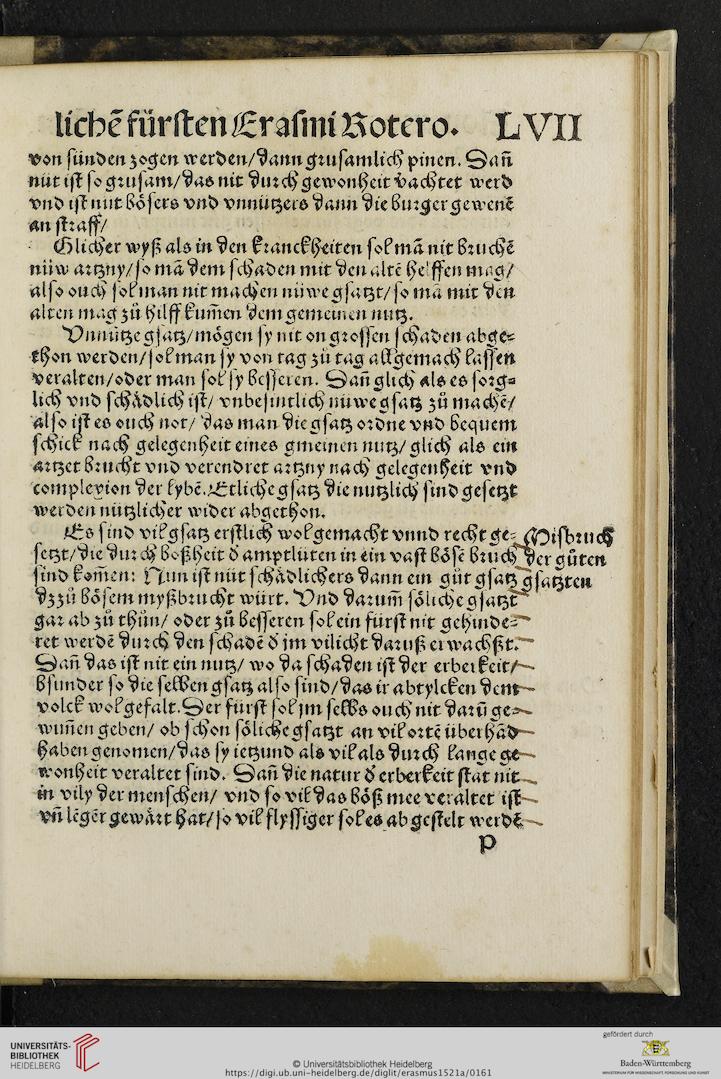 lichē fürsten Erasmi Rotero. LVII
von sünden zogen werden/dann grusamlich pinen. Dañ
nüt ist so grusam/das nit durch gewonheit vachtet werd
vnd ist nüt bösers vnd vnnützers dann die burger gewenē
an straff/
Glicher wyß als in den kranckheiten sol mā nit bruchē
nüw artzny/so mā dem schaden mit den altē helffen mag/
also ouch sol man nit machen nüwe gsatzt/so mā mit den
alten mag zů hilff kum̄en dem gemeinen nutz.
Vnnütze gsatz/mögen sy nit on grossen schaden abge⸗
thon werden/sol man sy von tag zů tag allgemach lassen
veralten/oder man sol sy besseren. Dañ glich als es sorg⸗
lich vnd schädlich ist/ vnbesintlich nüwe gsatz zů machē/
also ist es ouch not/ das man die gsatz ordne vnd bequem
schick nach gelegenheit eines gmeinen nutz/ glich als ein
artzet brucht vnd verendret artzny nach gelegenheit vnd
complexion der lybē. Etliche gsatz die nutzlich sind gesetzt
werden nützlicher wider abgethon.
Es sind vil gsatz erstlich wol gemacht vnnd recht ge⸗
setzt/die durch boßheit d̄ amptlüten in ein vast böse bruch
sind kom̄en: Nun ist nüt schädlichers dann ein gůt gsatz
dz zů bösem myßbrucht würt. Vnd darum̄ söliche gsatzt
gar ab zů thůn/ oder zů besseren sol ein fürst nit gehinde⸗
ret werdē durch den schadē d̄ jm vilicht daruß erwachßt.
Dañ das ist nit ein nutz/ wo da schaden ist der erberkeit/
bsunder so die selben gsatz also sind/das ir abtylcken dem
volck wol gefalt. Der fürst sol jm selbs ouch nit darū ge⸗
wuñen geben/ ob schon söliche gsatzt an vil ortē überhād
haben genomen/das sy ietzund als vil als durch lange ge
wonheit veraltet sind. Dañ die natur d̄ erberkeit stat nit
in vily der menschen/ vnd so vil das böß mee veraltet ist
vñ lēgēr gewärt hat/so vil flyssiger sol es abgestelt werdē
Misbruch
der gůten
gsatzten
p
UNIVERSITÄTS-
BIBLIOTHEK
HEIDELBERG
© Universitätsbibliothek Heidelberg
https://digi.ub.uni-heidelberg.de/diglit/erasmus1521a/0161
gefördert durch
Baden-Württemberg
MINISTERIUM FÜR WISSENSCHAFT, FORSCHUNG UND KUNST